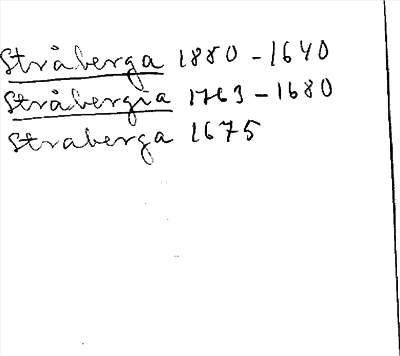 Stråberga 1880-1640
Stråbergia 1763-1680
Straberga 1675